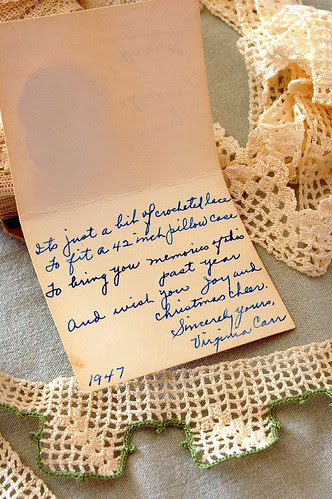 Its just a bit of crocheted lace
To fit a 42 inch pillow case
To bring you memories of this
past year
And wish you Joy and
Christmas cheer.
Sincerely yours,
Virginia Carr
1947